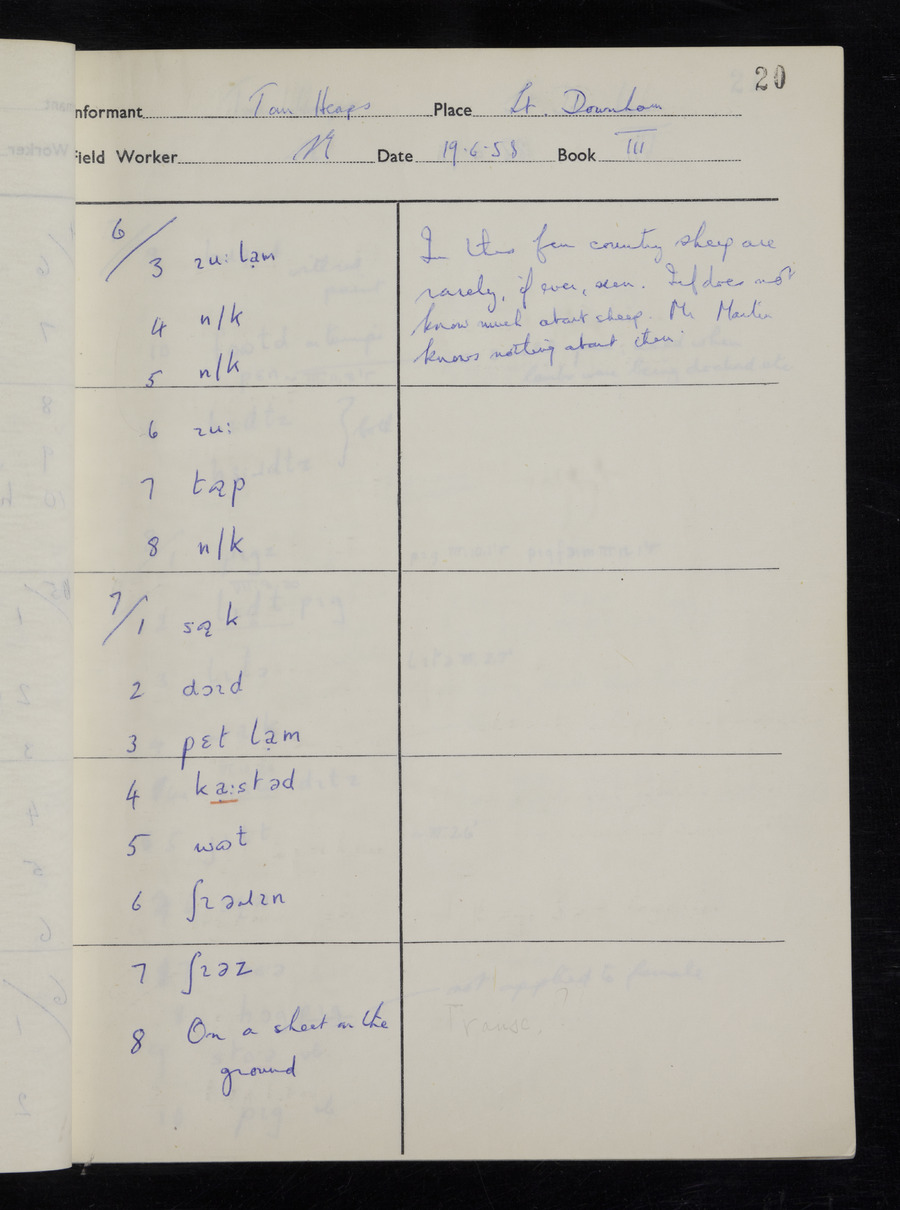 20
Informant Tom Heaps Place Lt. Downham
Field Worker Date 19.6.58 Book III
6/3 ɹuː lạm
4 n/k
5 n/k
In this fen country sheep are
rarely, if ever, seen. Inf does not
know much about sheep. Mr Martin
knows nothing about them.
6 ɹuː
7 tæp
8 n/k
7/1 sæk
2 dɔɪd
3 pɛt lạm
4 kạːstəd
5 wɒt
6
7 ʃɪəz
8 On a sheet on the
ground
Transc.